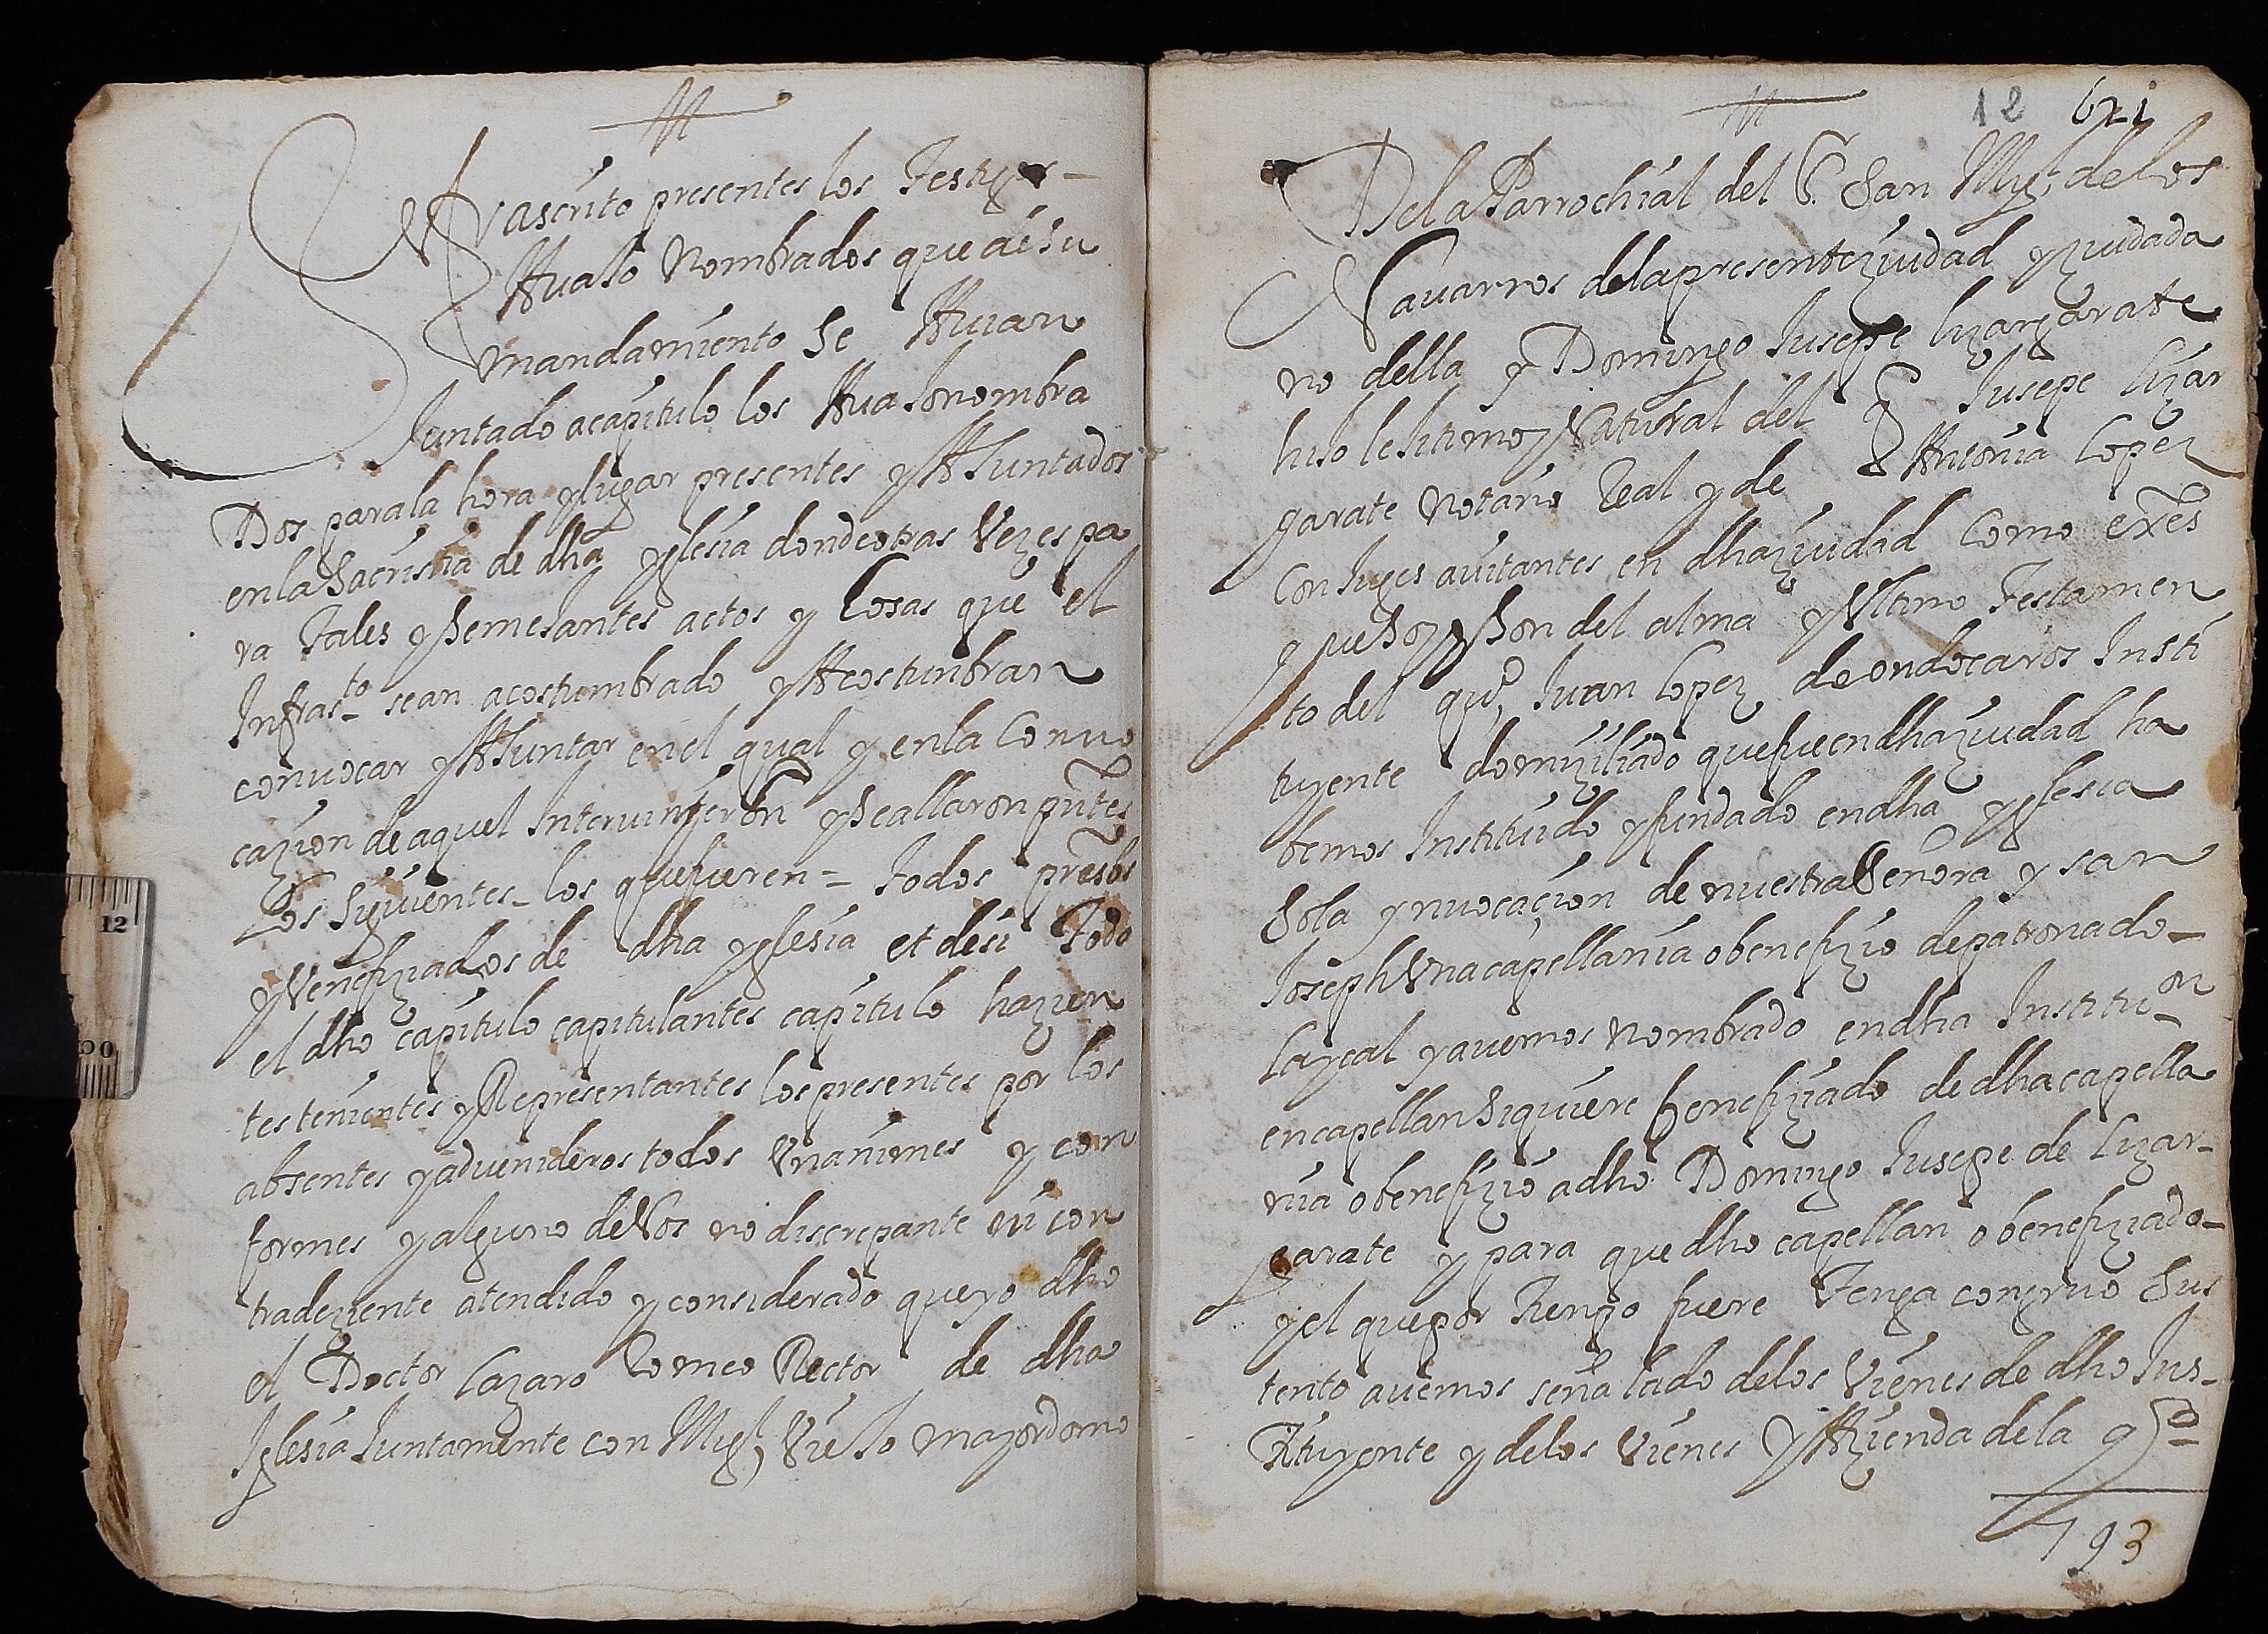 frascrito presentes los Testigos
Auaso Nombrados que de su
mandamiento Se Auian
Juntado a capitulo los Auasonombra
Dos para la hora y lugar presentes y AJuntados
en la Sacristia de dha yglesia donde otras Vezes pa
ra Tales y Semesantes actos y Cosas que el
Infrasto sean acostumbrado y Acostunbran
conuocar y AJuntar en el qual y en la Conuo
cazion de aquel Interuinieron y Se allaron pntes
Los Siguientes_ los que fueren = todos presbos
y Venefiziados de dha yglesia et desi Todo
el dho capitulo capitulantes capitulo hazien
tes tenientes y Representantes los presentes por los
absentes y aduenideros todos Vnanimes y con
formes y alguno de Nos no discrepante ni con
tradeziente atendido y considerado que yo dho
el Doctor Lazaro Romeo Rector de dha
Iglesia Juntamente con Migl, Vieso mayordomo
12 621
De la Parrochial del S. San Migl, de los
Nauarros de la presente ziudad y ziudada
no della y Domingo Jusepe lizargarate
hiso lesitimo y Natural del q Jusepe lizar
garate Notario Real y de Antonia lopez
Conjuges auitantes en dha ziudad Como exes
que Soy y Son del alma y Vltimo Testamen
to del qo, Juan lopez de ondocaros Insti
tuyente domiziliado que fue en dha ziudad ha
bemos Instituido y fundado en dha yglesia
Sola ynuocaçion de nuestra Señora y san
Joseph Vna capellania o benefizio de patronado_
laycal y auemos nombrado en dha Institu_on
en capellan Siquiere benefiziado de dha capella
nia o benefizio a dho Domingo Jusepe de lizar_
garate y para que dho capellan o benefiziado_
y el que por tienpo fuere Tenga congruo Sus
tento auemos señalado de los Vienes de dho Ins_
Tituyente y de los Vienes y Azienda de la qd
193